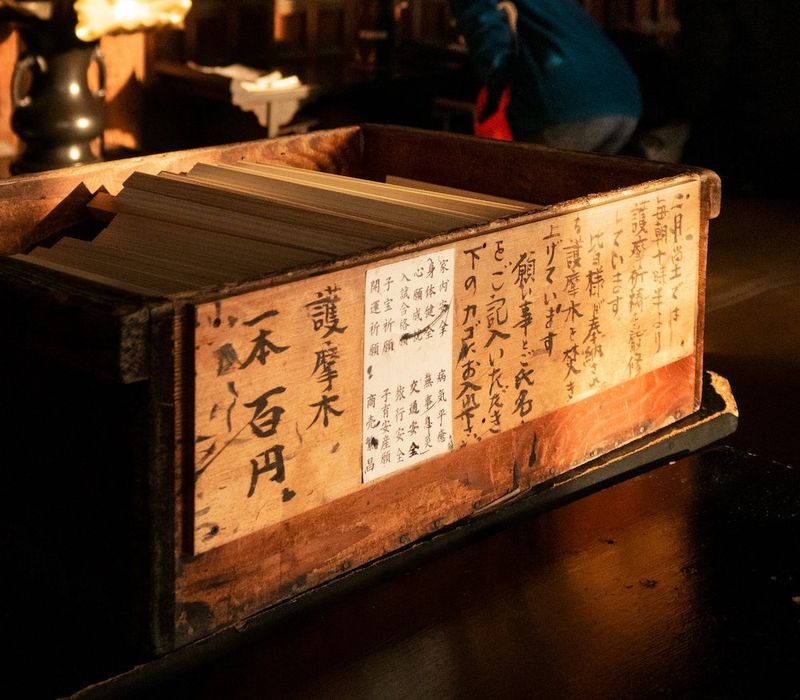 二月堂では
毎朝十時半より
護摩祈祷を厳修
しています
皆様が奉納され
る護摩木を焚き
上げています
願い事とご氏名
をご記入いただき
下のカゴにお入れ下さい
家内安全 病気平癒
身体健全 無事息災
心願成就 交通安全
入試合格 旅行安全
子宝祈願 子育安産願
開運祈願 商売繁昌
護摩木
一本 百円